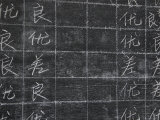 优 良 优
良 优 优
优 差 差
良 良 优
优 优